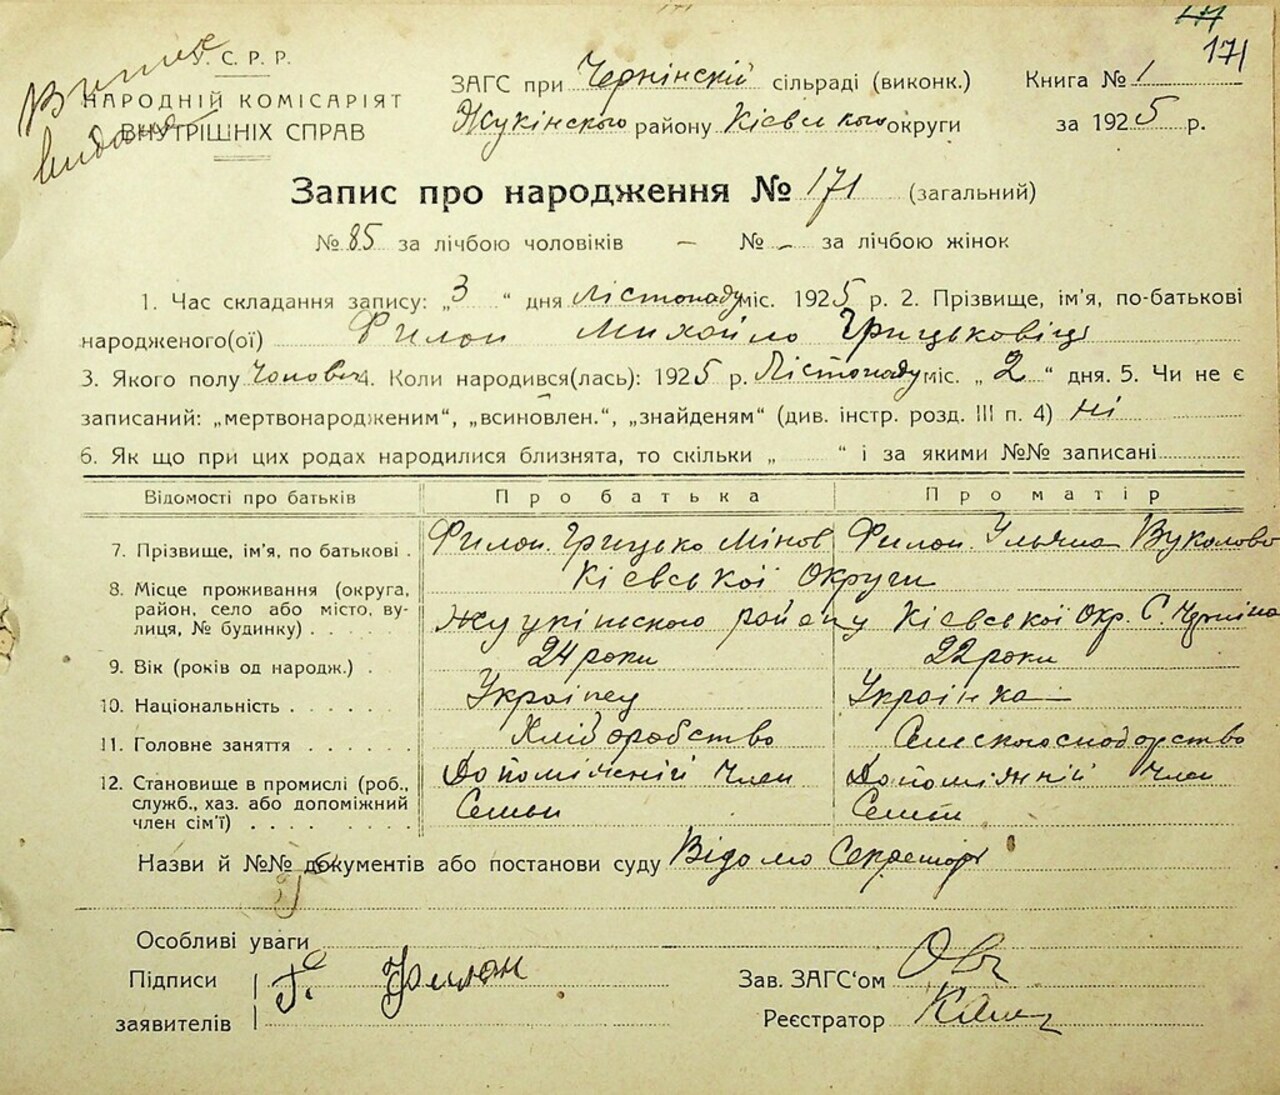 171
171
У. С. Р. Р.
НАРОДНІЙ КОМІСАРІЯТ
ВНУТРІШНІХ СПРАВ
ЗАГС при Чернінскій сільраді (виконк.)
Жукінского району Кіевского округи
Книга № 1
за 1925 р.
Запис про народження № 171 (загальний)
№ 85 за лічбою чоловіків — № - за лічбою жінок
1. Час складання запису: „3“ дня Лістопаду міс. 1925 р. 2. Прізвище, ім'я, по-батькові
народженого(ої) Филон Михайло Грицьковіч
3. Якого полу Чоловіч 4. Коли народився(лась): 1925 р. Лістопаду міс. „2“ дня. 5. Чи не є
записаний: „мертвонародженим“, „всиновлен.“, „знайденям“ (див. інстр. розд. III п. 4) ні
6. Як що при цих родах народилися близнята, то скільки „ “ і за якими №№ записані
Відомості про батьків Про батька Про матір
7. Прізвище, ім'я, по батькові . Филон Грицько Мінов Филон Ульяна Вуколовн
8. Місце проживання (округа, район, село або місто, вулиця, № будинку) Кіевської Округи
Жукінського району Кіевської Окр. С. Черніна
9. Вік (років од народж.) . 24 роки 22 роки
10. Національність Украінец Украінка
11. Головне заняття Хліборобство Селскогосподорство
12. Становище в промислі (роб., служб., хаз. або допоміжний член сім'ї) Допоміжній Член Допоміжній Член
Семьи Семьи
Назви й №№ документів або постанови суду Відомо Секретарю
Особливі уваги
Підписи
заявителів Г. Филон
Зав. ЗАГС'ом
Реєстратор